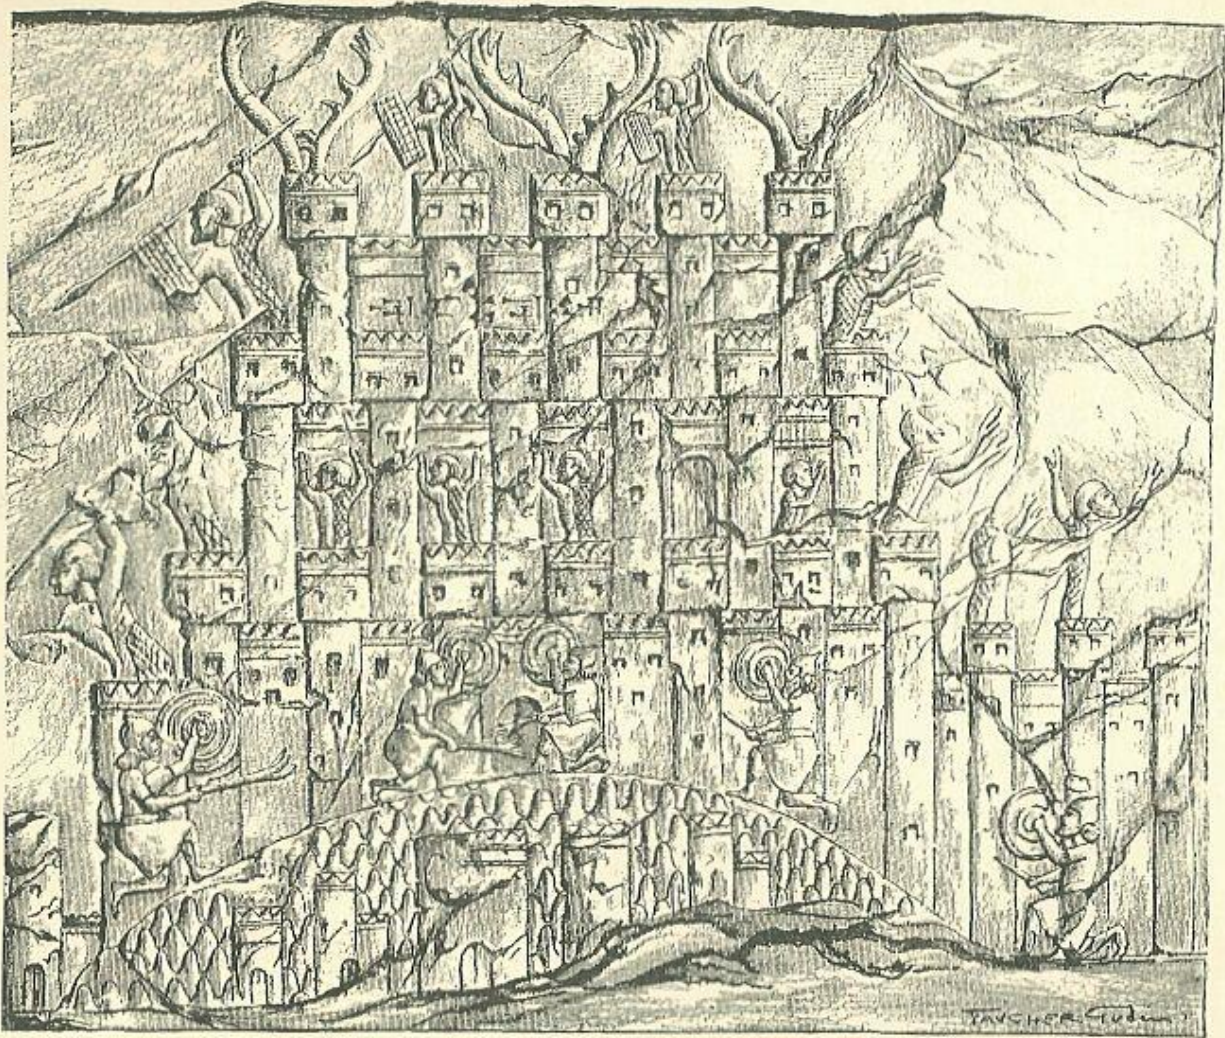 TAUCHER Gudin